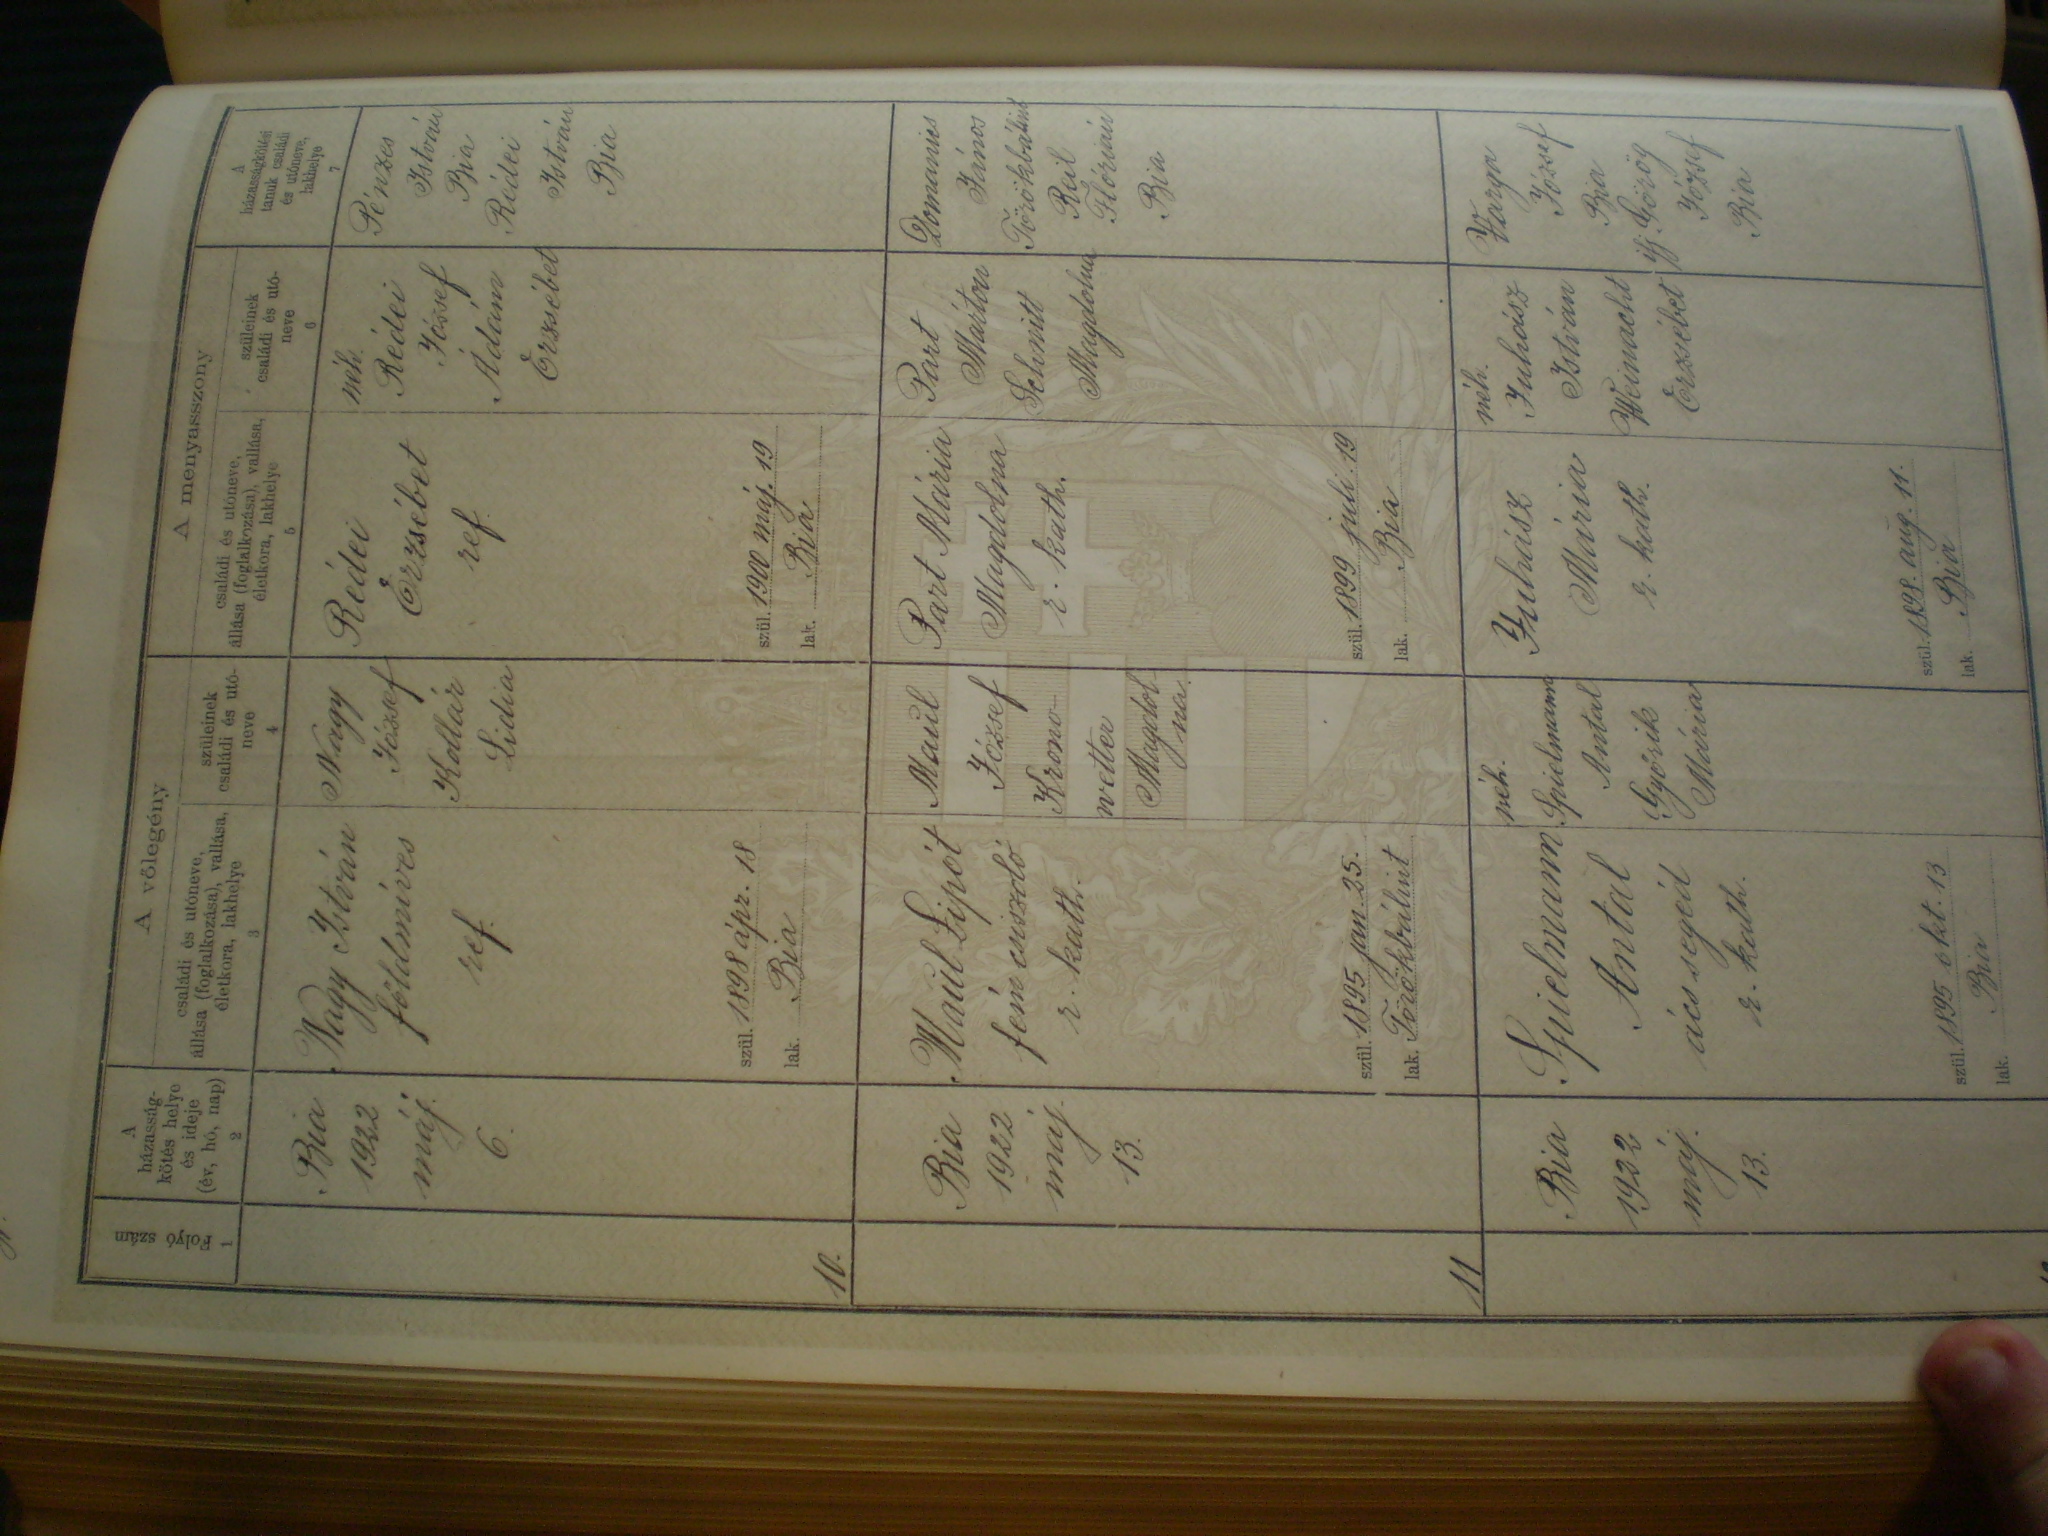 Folyó szám
1
A
házasság-
kötés helye
és ideje
(év, hó, nap)
2
A vőlegény
családi és utóneve,
állása (foglalkozása), vallása,
életkora, lakhelye
3
szüleinek
családi és utó-
neve
4
A menyasszony
családi és utóneve,
állása (foglalkozása), vallása,
életkora, lakhelye
5
szüleinek
családi és utó-
neve
6
A
házasságkötési
tanuk családi
és utóneve,
lakhelye
7
Bia
1922
máj.
6.
Nagy István
földmíves
ref.
szül. 1898 ápr. 18
lak. Bia
Nagy
József
Kollár
Lidia
Rédei
Erzsébet
ref.
szül. 1900 máj. 19
lak. Bia
néh.
Rédei
József
Ádám
Erzsébet
Pénzes
István
Bia
Rédei
István
Bia
10.
Bia
1922
máj.
13.
Maul Lipót
fémcsiszoló
r. kath.
szül. 1895 jan. 25.
lak. Törökbálint
Maul
József
Krono-
wetter
Magdol
na.
Part Mária
Magdolna
r. kath.
szül. 1899 juli. 19
lak. Bia
Part
Márton
Schmitt
Magdolna
Domanics
János
Törökbálint
Reil
Flórián
Bia
11
Bia
1922
máj.
13.
Spielmann
Antal
ács segéd
r. kath.
szül. 1895 okt. 13
lak. Bia
néh.
Spielmann
Antal
Győrik
Mária
Juhász
Mária
r. kath.
szül. 1898. aug. 11.
lak. Bia
néh.
Juhász
István
Weinacht
Erzsébet
Varga
József
Bia
ifj. Görög
József
Bia